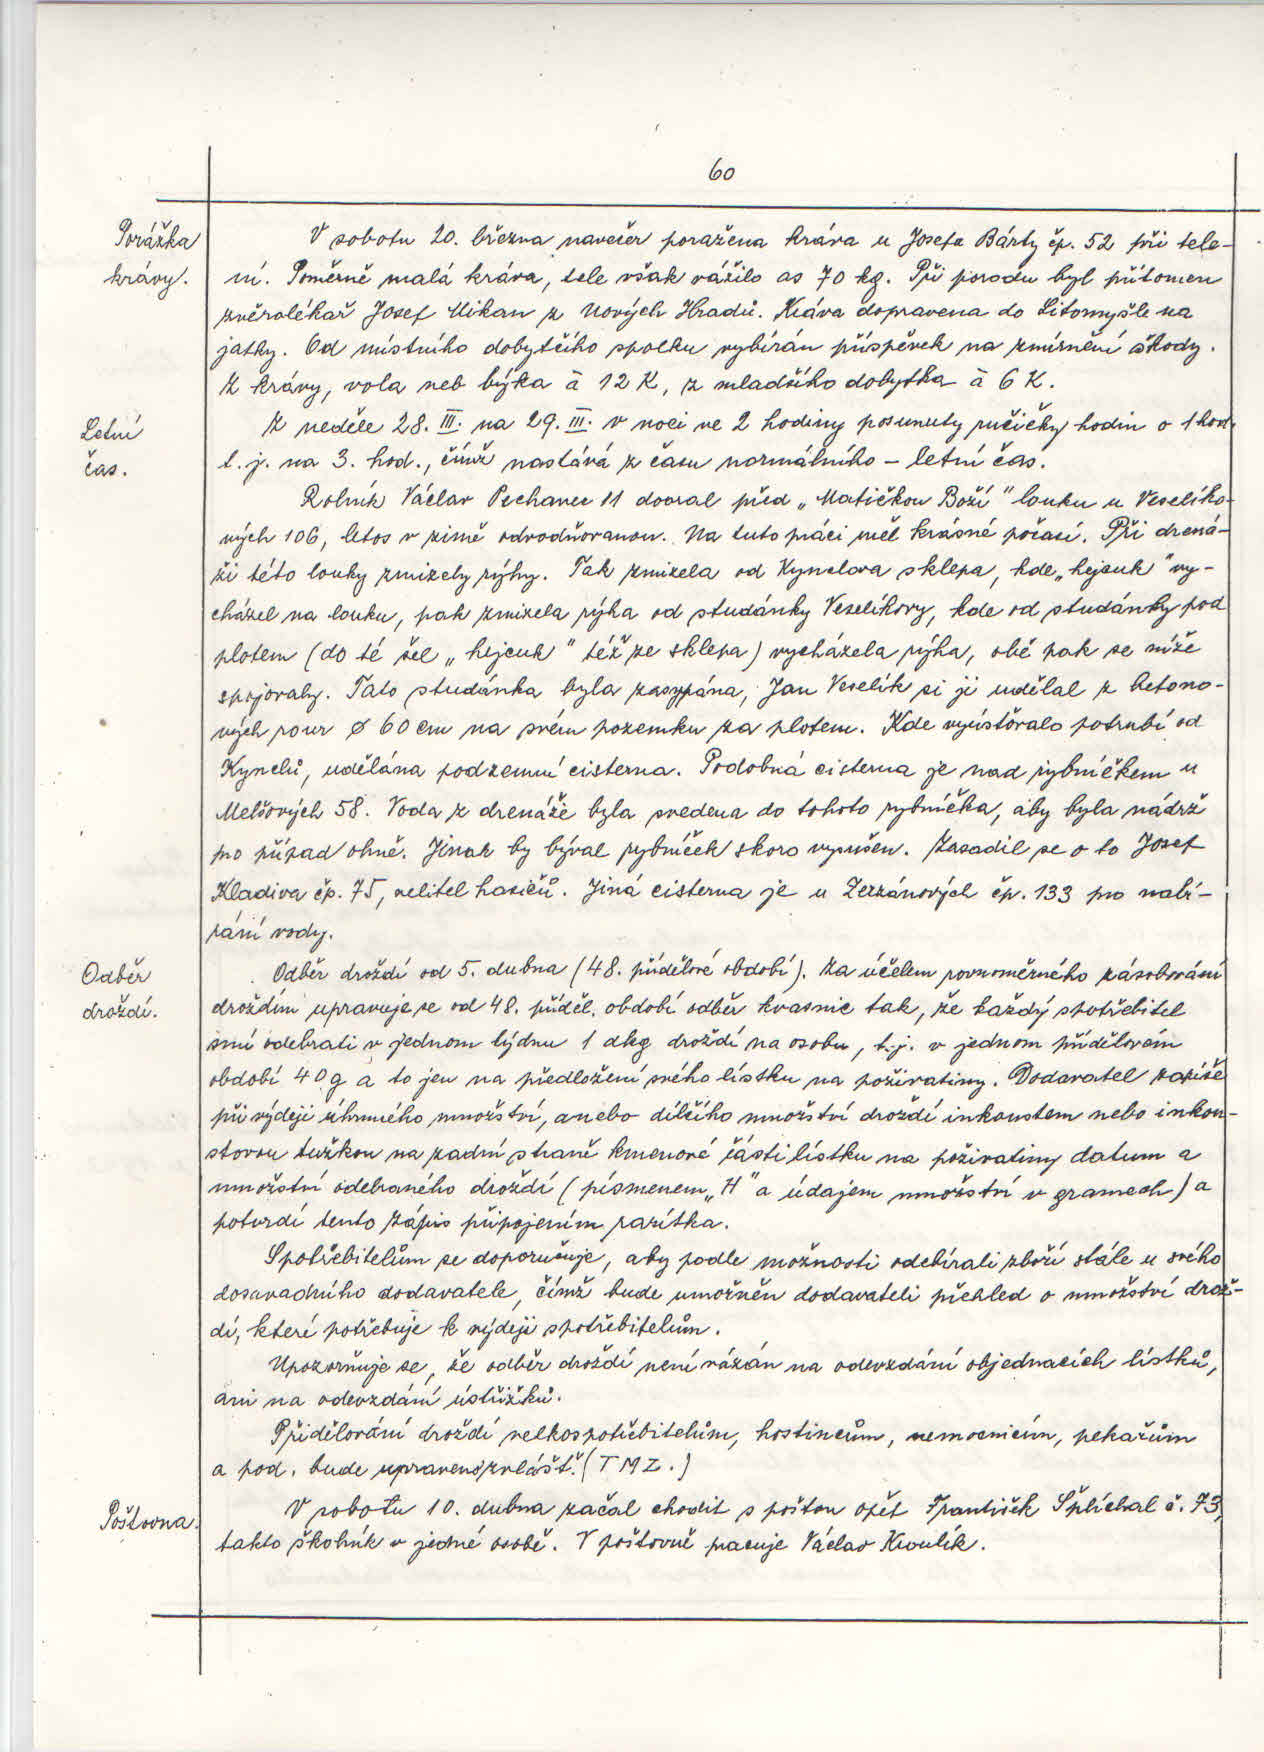 60
Porážka
krávy.
V sobotu 20. března navečer poražena kráva u Josefa Bárty čp. 52 při tele-
ní. Poměrně malá kráva, tele však vážilo as 70 kg. Při porodu byl přítomen
zvěrolékař Josef Mikan z Nových Hradů. Kráva dopravena do Litomyšle na
jatky. Od místního dobytčího spolku vybírán příspěvek na zmírnění škody.
Z krávy, vola neb býka à 12 K, z mladšího dobytka à 6 K.
Letní
čas.
Z neděle 28. III. na 29. III. v noci ve 2 hodiny posunuty ručičky hodin o 1 hod.
t. j. na 3. hod., čímž nastává z času normálního – letní čas.
Rolník Václav Pechanec 11 dooral před „Matičkou Boží" louku u Veselíko-
vých 106, letos v zimě odvodňovanou. Na tuto práci měl krásné počasí. Při drená-
ži této louky zmizely rýhy. Tak zmizela od Kynclova sklepa, kde „hejcuk" vy-
cházel na louku, pak zmizela rýha od studánky Veselíkovy, kde od studánky pod
plotem (do té šel „hejcuk" též ze sklepa) vycházela rýha, obě pak se níže
spojovaly. Tato studánka byla zasypána, Jan Veselík si ji udělal z betono-
vých rour ø 60 cm na svém pozemku za plotem. Kde vyúsťovalo potrubí od
Kynclů, udělána podzemní cisterna. Podobná cisterna je nad rybníčkem u
Melšových 58. Voda z drenáže byla svedena do tohoto rybníčka, aby byla nádrž
pro případ ohně. Jinak by býval rybníček skoro vysušen. Zasadil se o to Josef
Kladiva čp. 75, velitel hasičů. Jiná cisterna je u Zerzánových čp. 133 pro nabí-
rání vody.
Odběr
droždí.
Odběr droždí od 5. dubna (48. přídělové období). Za účelem rovnoměrného zásobování
droždím upravuje se od 48. příděl. období odběr kvasnic tak, že každý spotřebitel
smí odebrati v jednom týdnu 1 dkg droždí na osobu, t. j. v jednom přídělovém
období 40 g a to jen na předložení svého lístku na poživatiny. Dodavatel zapíše
při výdeji úhrnného množství, anebo dílčího množství droždí inkoustem nebo inkou-
stovou tužkou na zadní straně kmenové části lístku na poživatiny datum a
množství odebraného droždí (písmenem „H" a údajem množství v gramech) a
potvrdí tento zápis připojením razítka.
Spotřebitelům se doporučuje, aby podle možnosti odebírali zboží stále u svého
dosavadního dodavatele, čímž bude umožněn dodavateli přehled o množství drož-
dí, které potřebuje k výdeji spotřebitelům.
Upozorňuje se, že odběr droždí není vázán na odevzdání objednacích lístků,
ani na odevzdání ústřižků.
Přidělování droždí velkospotřebitelům, hostincům, nemocnicím, pekařům
a pod. bude upraveno zvlášť. (TMZ.)
Poštovna.
V sobotu 10. dubna začal chodit s poštou opět František Šplíchal č. 73,
takto školník v jedné osobě. V poštovně pracuje Václav Kroulík.